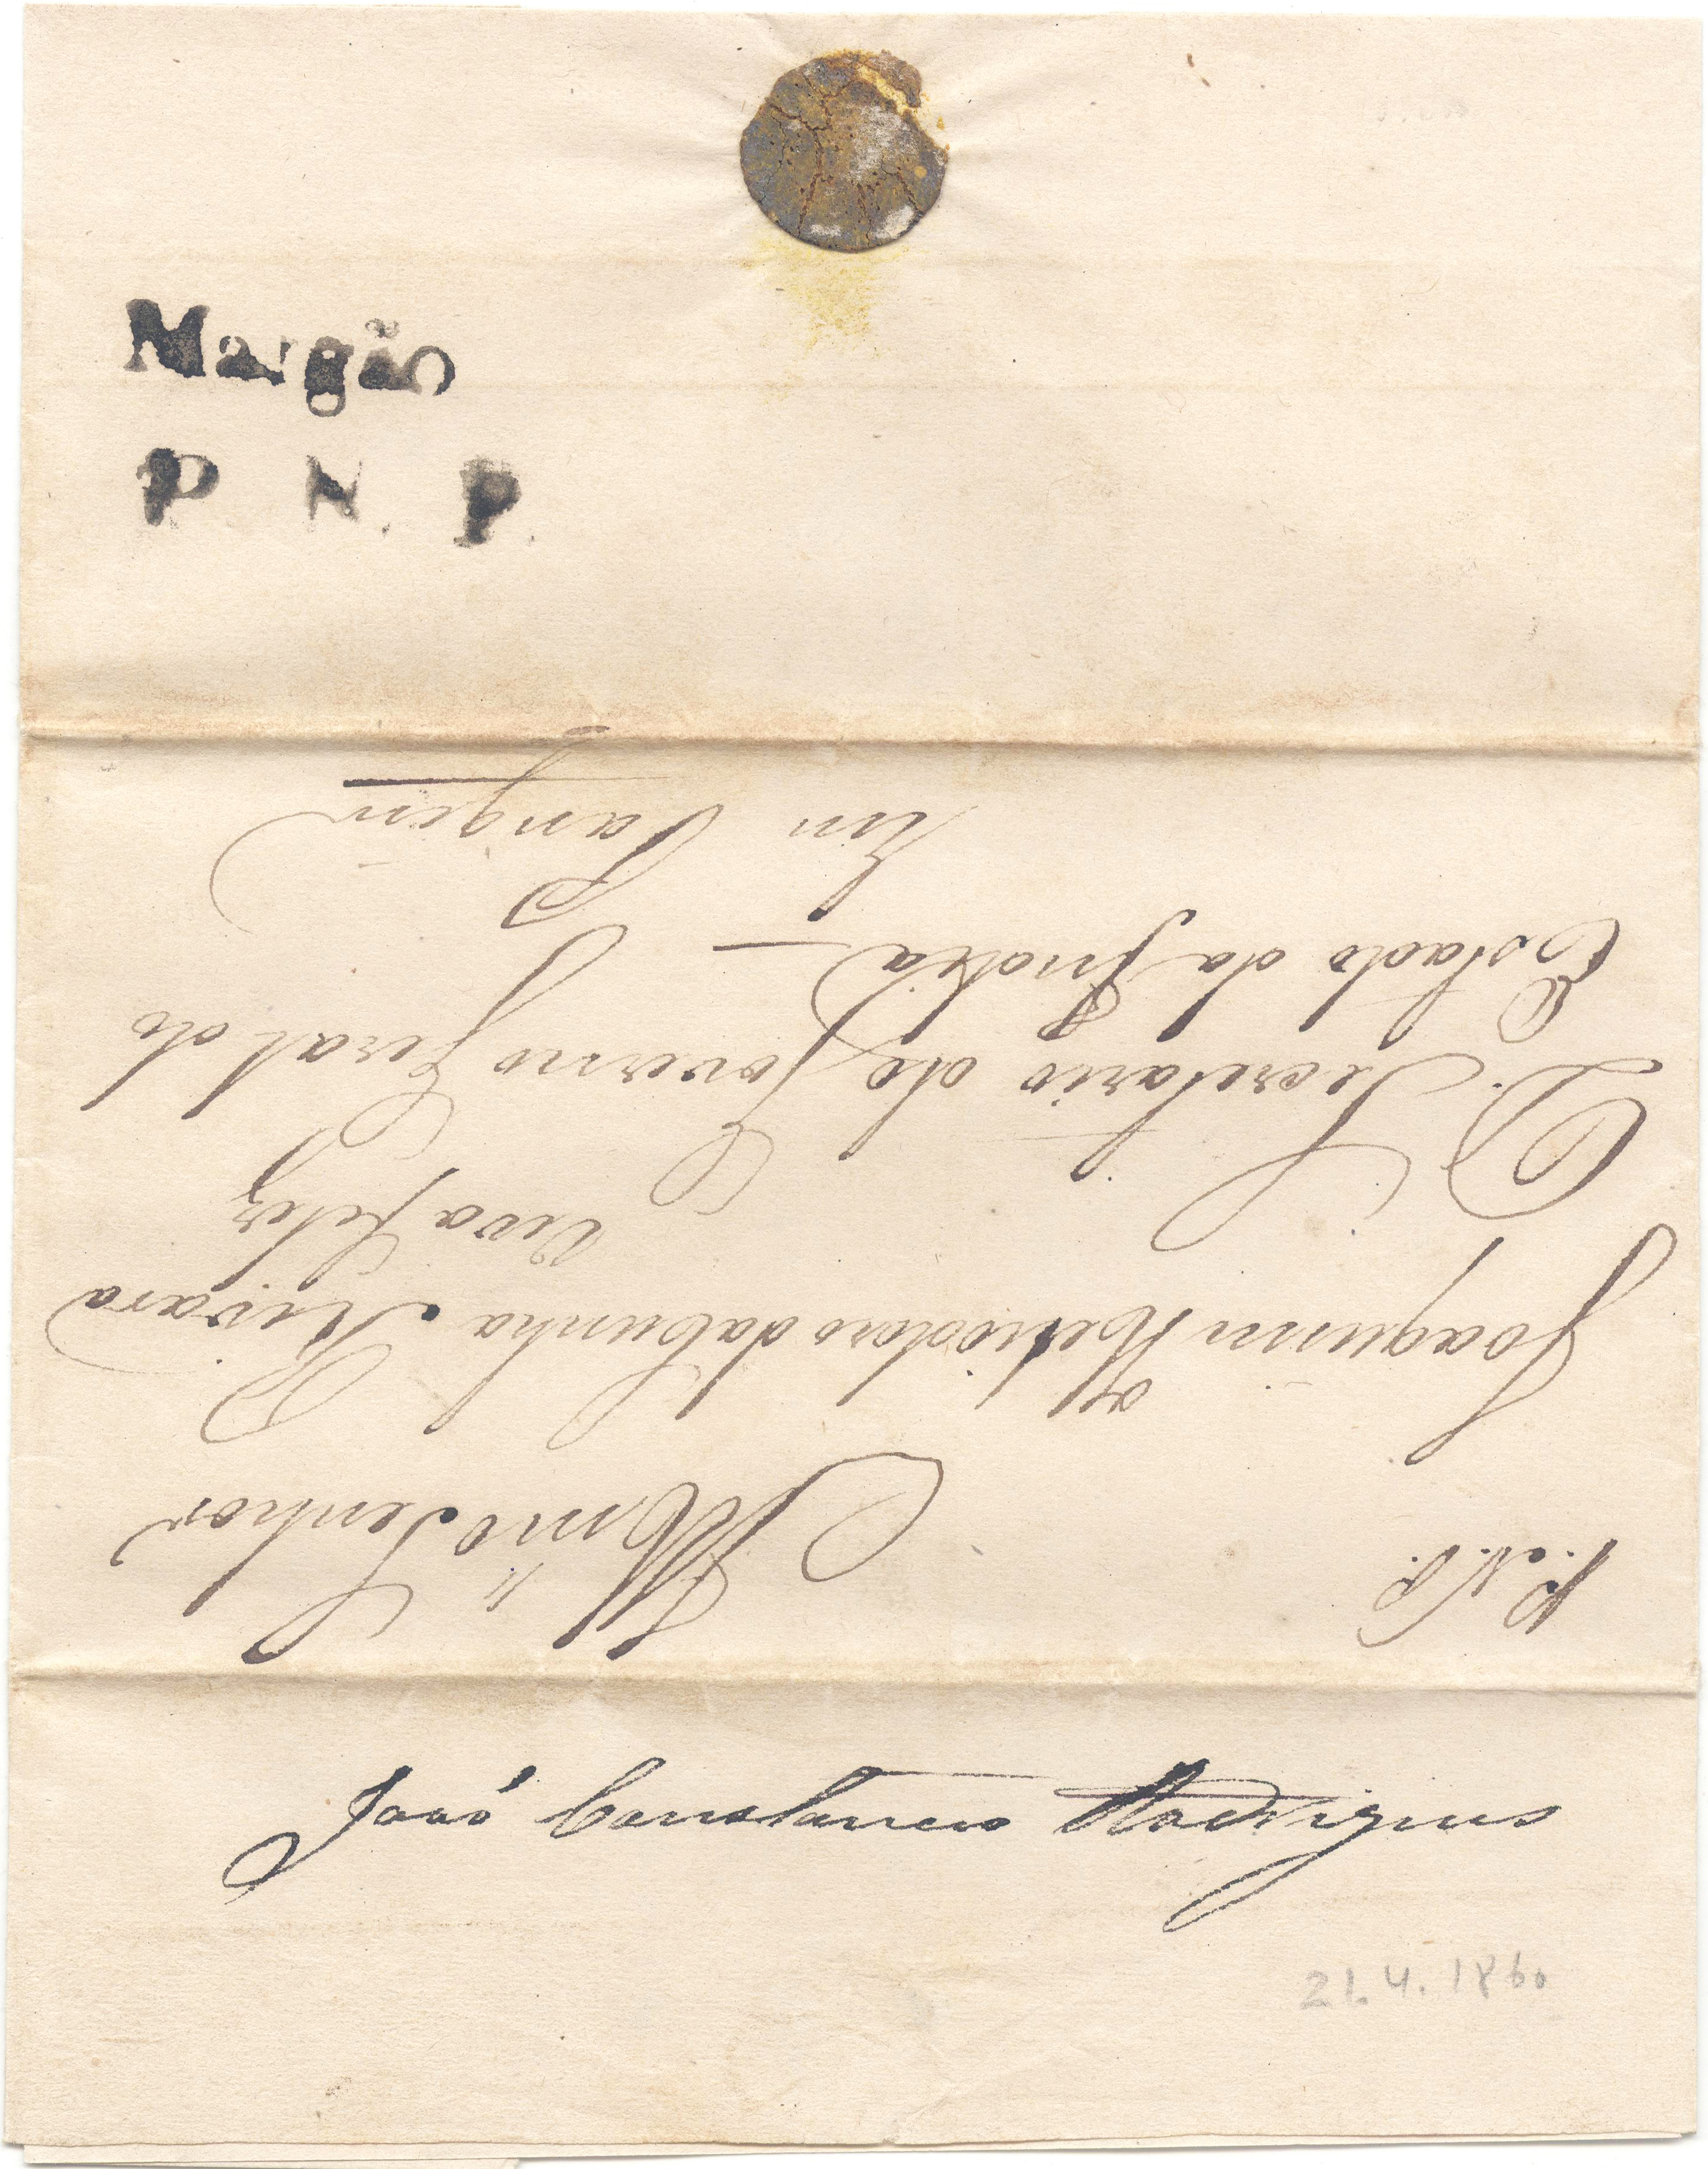 Margão
P N. P.
P. N. P.
Illmo Senhor
Joaquim Heliodoro da Cunha Rivara
Viva feliz
D. Secretario do Governo Geral do
Estado da India
Em Pangim
João Constancio Rodrigues
21.4.1860